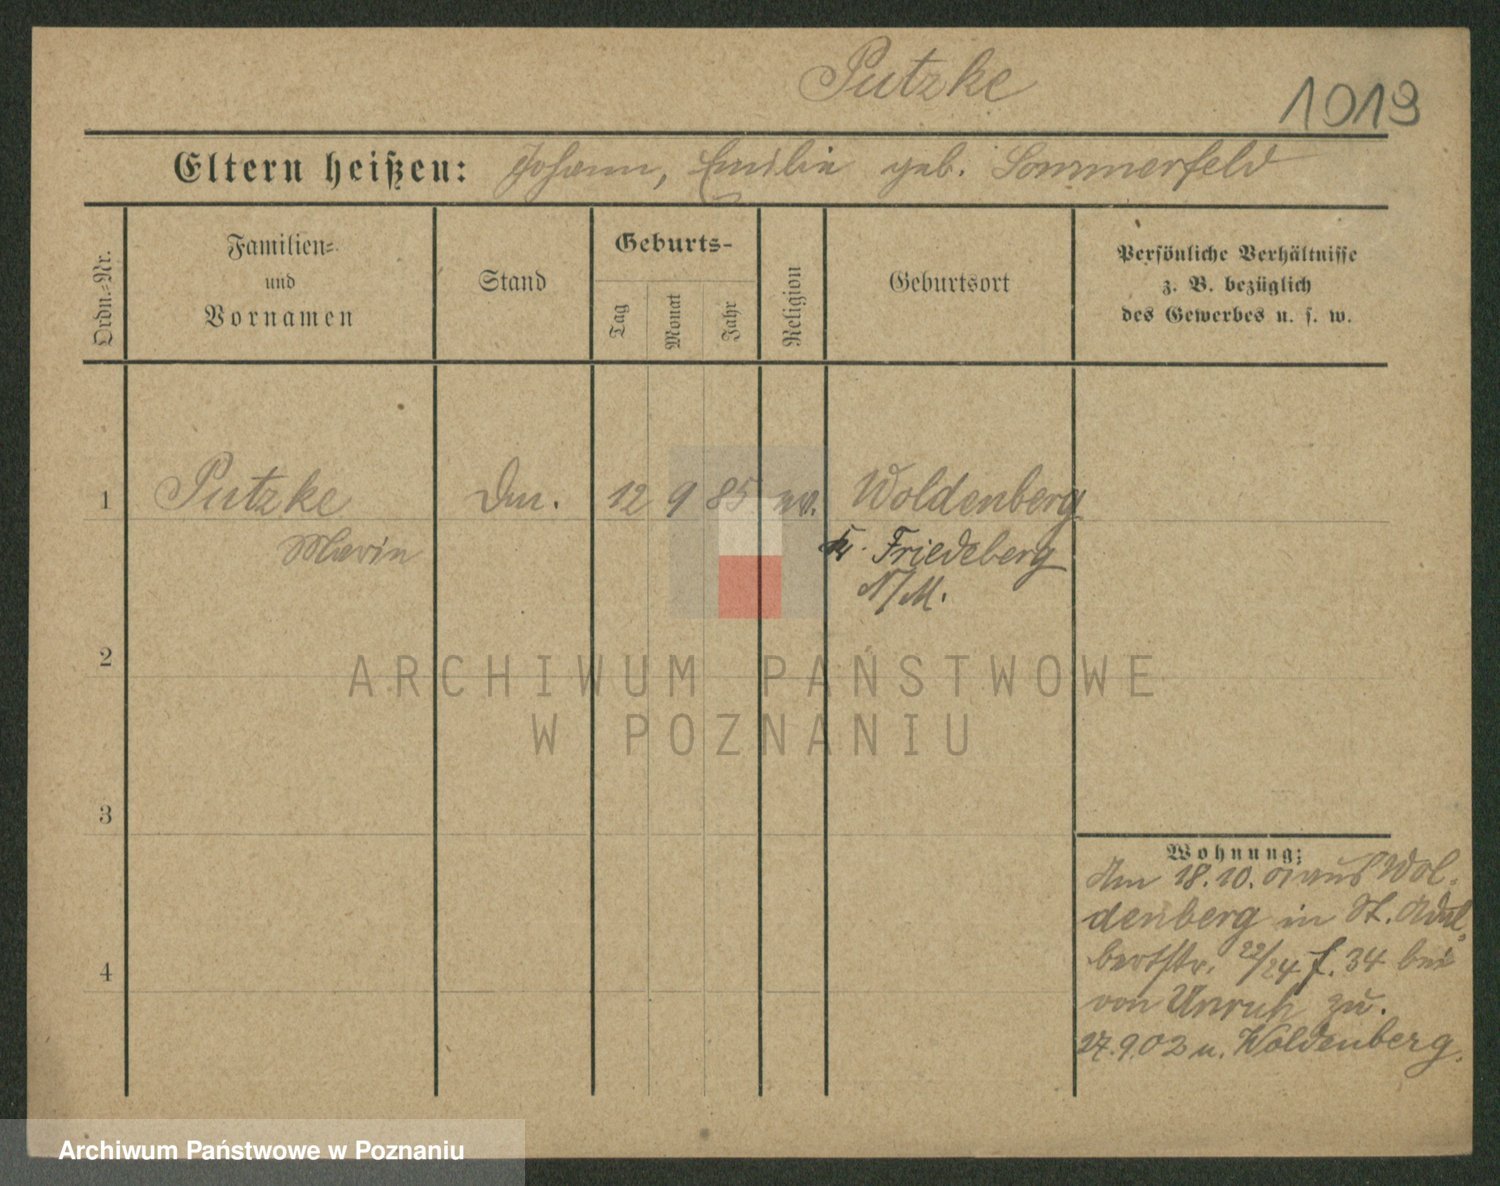 Putzke
1019
Eltern heißen: Johann, Emilie geb. Sommerfeld
Ordn.-Nr.
Familien-
und
Vornamen
Stand
Geburts-
Tag
Monat
Jahr
Religion
Geburtsort
Persönliche Verhältnisse
z. B. bezüglich
des Gewerbes u. s. w.
1 Putzke 12 9 85 Woldenberg
Marie Kr. Friedeberg
N/M.
2
ARCHIWUM PAŃSTWOWE
W POZNANIU
3
Wohnung:
Am 18.10.01 aus Wol-
denberg in St. Adal-
bertstr. 22/24 f. 34 bei
von Unruh zu.
4
27.9.02 n. Woldenberg.
Archiwum Państwowe w Poznaniu